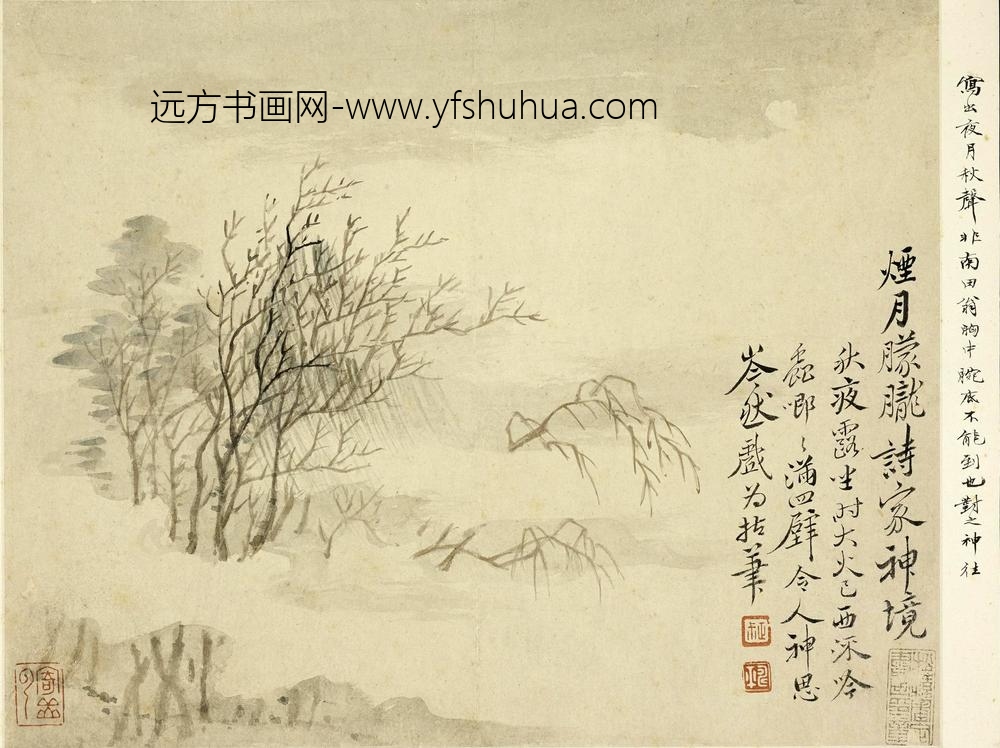 远方书画网-www.yfshuhua.com
寫出夜月秋聲非南田翁胸中腕底不能到也對之神往
煙月朦朧詩家神境
秋夜露坐時大火已西深吟
蟲唧〻滿四壁令人神思
岑然戲为拈筆